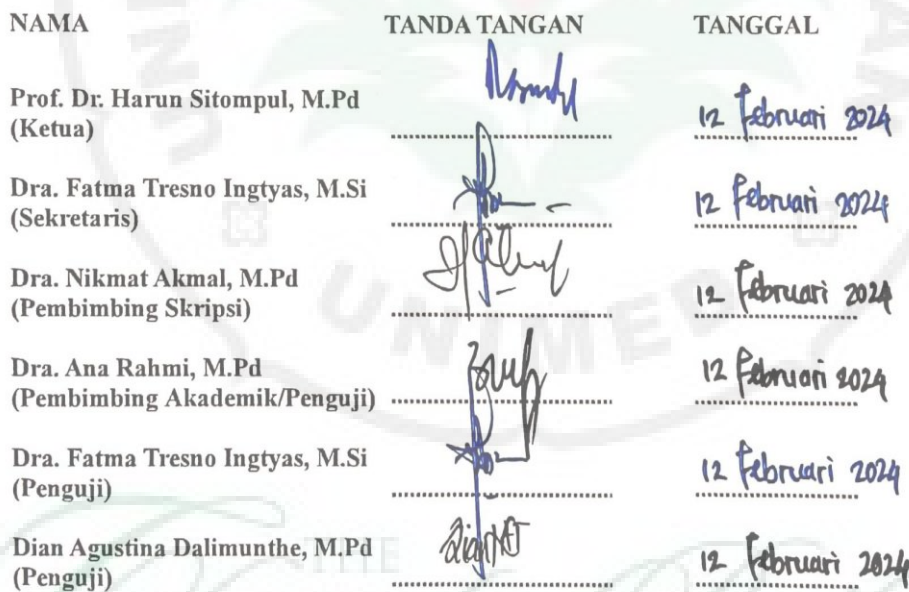 NAMA TANDA TANGAN TANGGAL
Prof. Dr. Harun Sitompul, M.Pd
(Ketua) 12 Februari 2024
Dra. Fatma Tresno Ingtyas, M.Si
(Sekretaris) 12 Februari 2024
Dra. Nikmat Akmal, M.Pd
(Pembimbing Skripsi) 12 Februari 2024
UNIMED
Dra. Ana Rahmi, M.Pd
(Pembimbing Akademik/Penguji) 12 Februari 2024
Dra. Fatma Tresno Ingtyas, M.Si
(Penguji) 12 Februari 2024
Dian Agustina Dalimunthe, M.Pd
THE
(Penguji) 12 Februari 2024